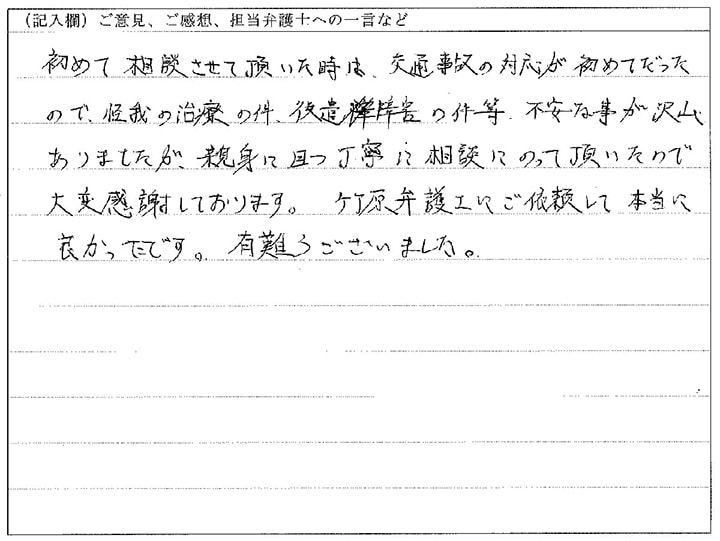 （記入欄）ご意見、ご感想、担当弁護士への一言など
初めて相談させて頂いた時は、交通事故の対応が初めてだった
ので、怪我の治療の件、後遺障害の件等、不安な事が沢山
ありましたが、親身に且つ丁寧に相談にのって頂いたので
大変感謝しております。竹原弁護士にご依頼して本当に
良かったです。有難うございました。